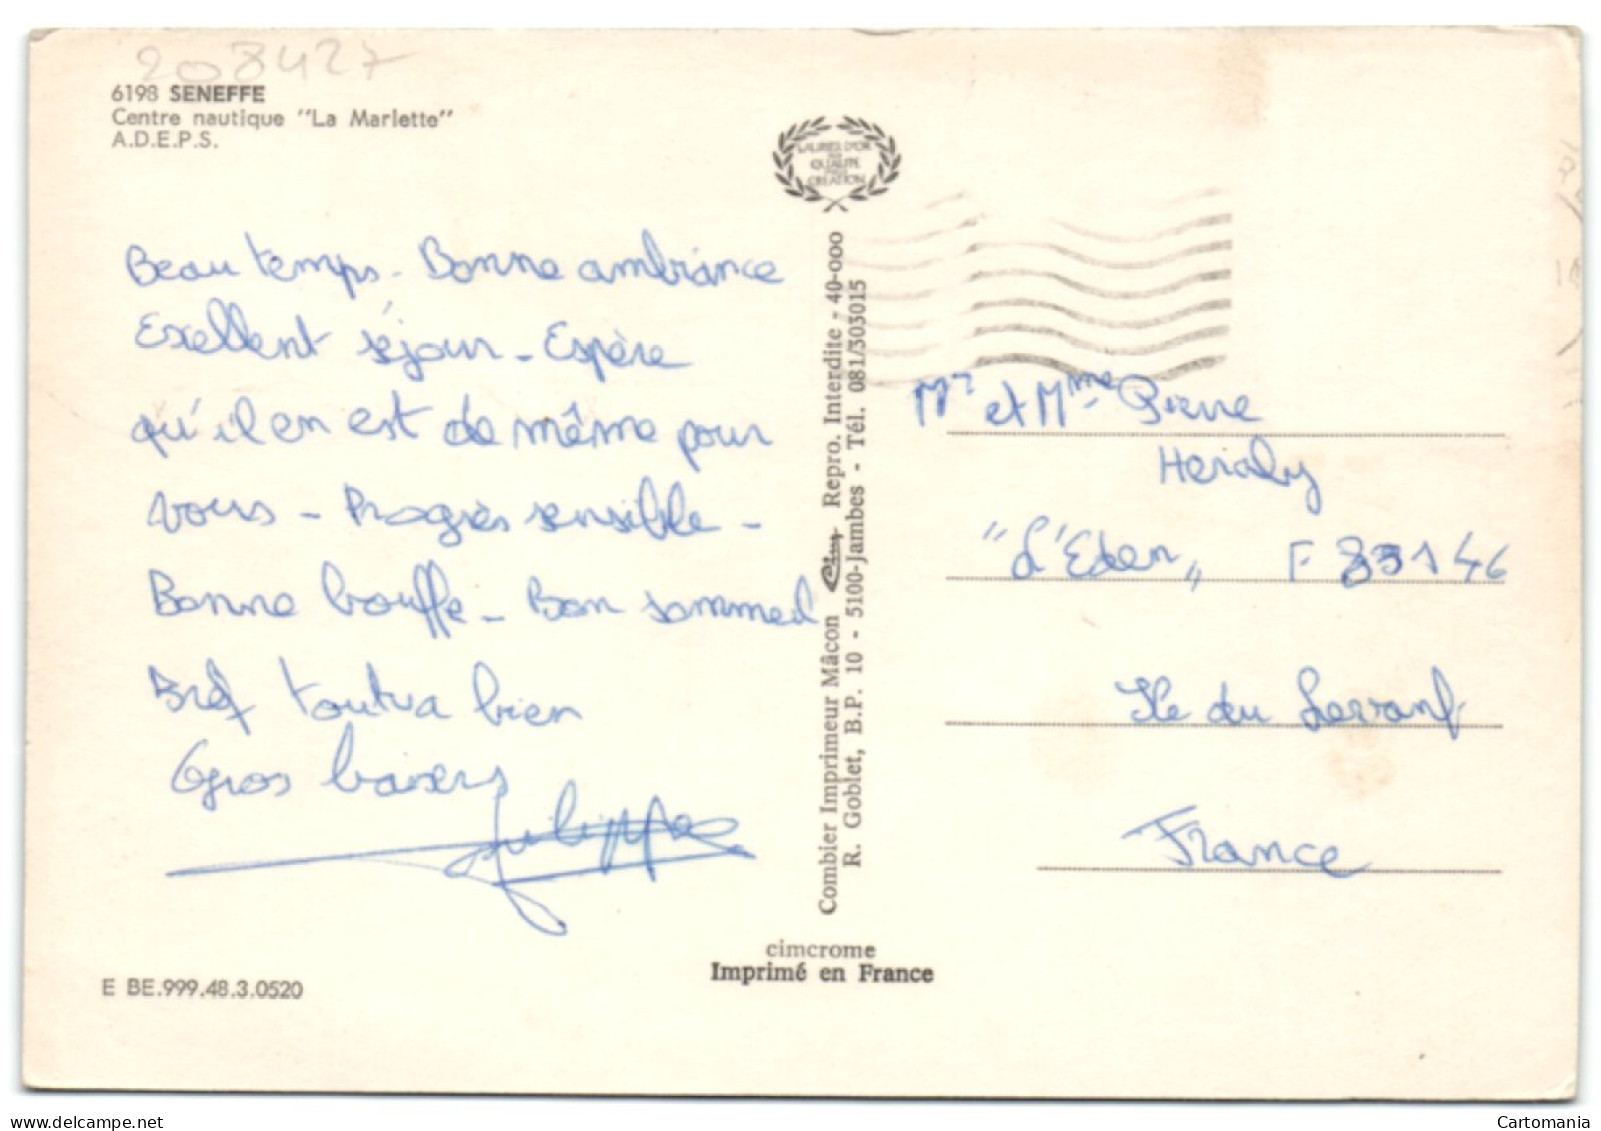 208427
6198 SENEFFE
Centre nautique "La Marlette"
A.D.E.P.S.
LAURIER D'OR
QUALITE
CREATION
Beau temps - Bonne ambiance
Exellent séjour - Espère
qu'il en est de même pour
vous - Progrès sensible -
Bonne bouffe - Bon sommeil
Bref tout va bien
Gros baisers
Philippe
E BE.999.48.3.0520
Combier Imprimeur Mâcon Cim Repro. Interdite - 40-000
R. Goblet, B.P. 10 - 5100-Jambes - Tél. 081/303015
cimcrome
Imprimé en France
Mr et Mme Pierre
Heraly
"L'Eden" F 83146
Ile du Levant
France
Cartomania
delcampe.net